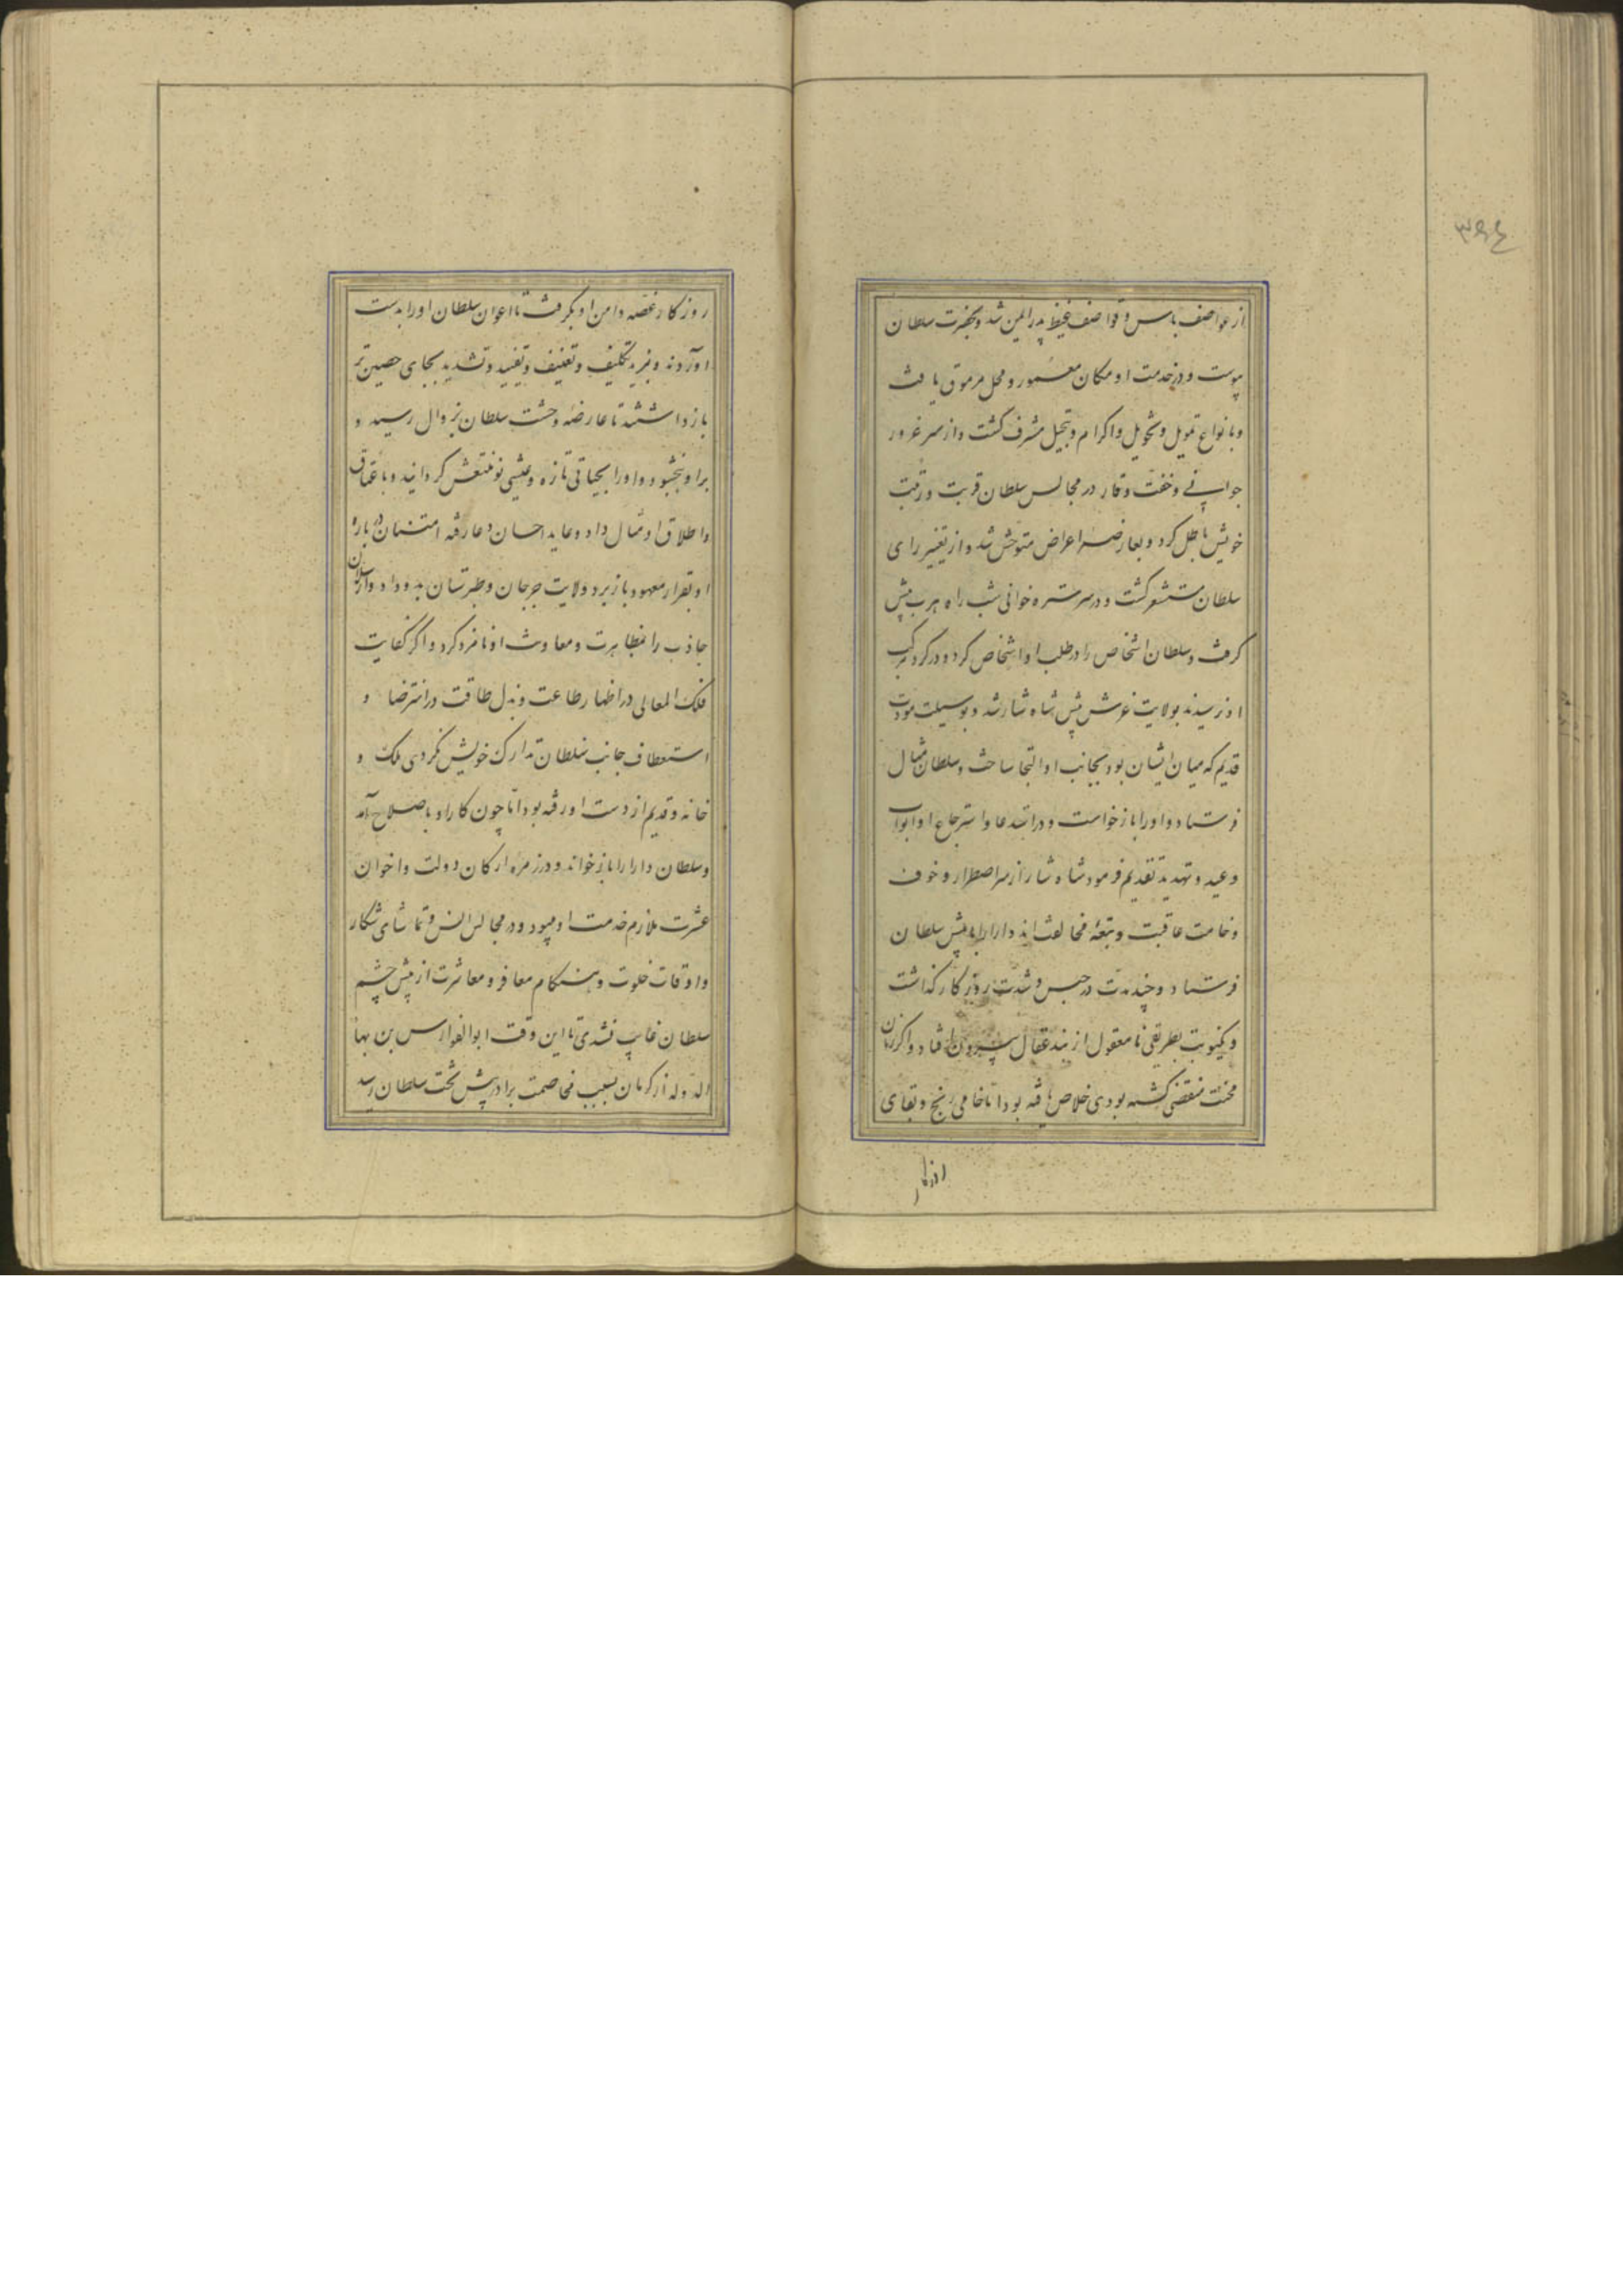 ۳۹۴
از عواصف باس و قواصف غیظ پدر ایمن شد و بحضرت سلطان
پیوست و در خدمت او مکان معمور و محل مرموق یافت
و بانواع تمویل و تخویل و اکرام و تبجیل مشرف کشت و از سر غرور
جوانی و خفت وقار در مجالس سلطان قربت و رتبت
خویش باطل کرد و بعارضه اعراض متوحش شد و از تغییر رای
سلطان مستشعر کشت و در سر ستره خوانی شب راه هرب پیش
کرفت و سلطان اشخاص را در طلب او اشخاص کرد و در کرد مرکب
او نرسیدند بولایت غرش پیش شاه شار شد و بوسیلت مودت
قدیم که میان ایشان بود بجانب او التجا ساخت و سلطان مثال
فرستاد و او را باز خواست و در استدعا و استرجاع او ابواب
وعید و تهدید تقدیم فرمود شاه شار از سر اضطرار و خوف
وخامت عاقبت و تبعه مخالفت او دارا را پیش سلطان
فرستاد و چند مدت در حبس و شدت روزکار کذاشت
و یکنوبت بطریقی نامعقول از بند عقال بیرون افتاد و اکر زمان
محنت منقضی کشته بودی خلاص یافته بود اما خامی رنج و بقای
روزکار غصه دامن او بکرفت تا اعوان سلطان او را بدست
آوردند و بمزید تکلیف و تعنیف و تقیید و تشدید بجای حصین تر
بازداشتند تا عارضه وحشت سلطان بزوال رسید و
بر او ببخشود و او را بحیاتی تازه و عیشی نو منتعش کردانید و باعتاق
و اطلاق او مثال داد و عاید احسان و عارفه امتنان در باره
او بقرار معهود باز برد و ولایت جرجان و طبرستان بدو داد و ارسلان
جاذب را بمظاهرت و معاونت او نامزد کرد و اکر کفایت
فلک المعالی در اظهار طاعت و بذل طاقت در استرضا و
استعطاف جانب سلطان تدارک خویش نکردی ملک و
خانه قدیم از دست او رفته بود اما چون کار او باصلاح آمد
و سلطان دارا را باز خواند و در زمره ارکان دولت و اخوان
عشرت ملازم خدمت او میبود و در مجالس انس و تماشای شکار
و اوقات خلوت و هنکام معاقره و معاشرت از پیش چشم
سلطان غایب نشدی تا این وقت ابوالفوارس بن بها
الدوله از کرمان بسبب مخاصمت برادر پیش تخت سلطان رسید